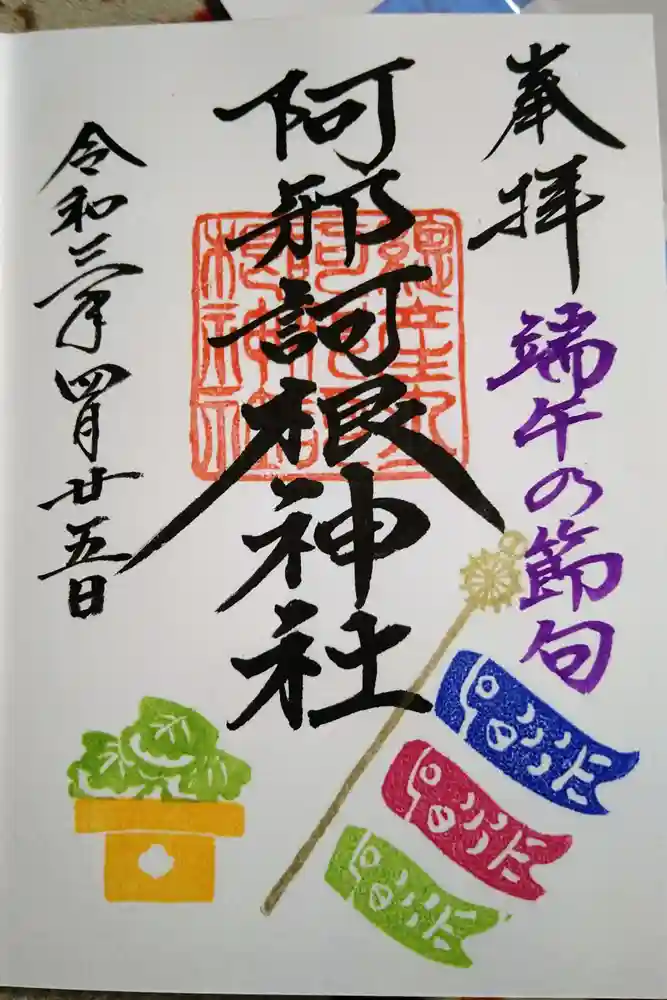 奉拝
端午の節句
阿邪訶根神社
根神社
令和三年四月廿五日